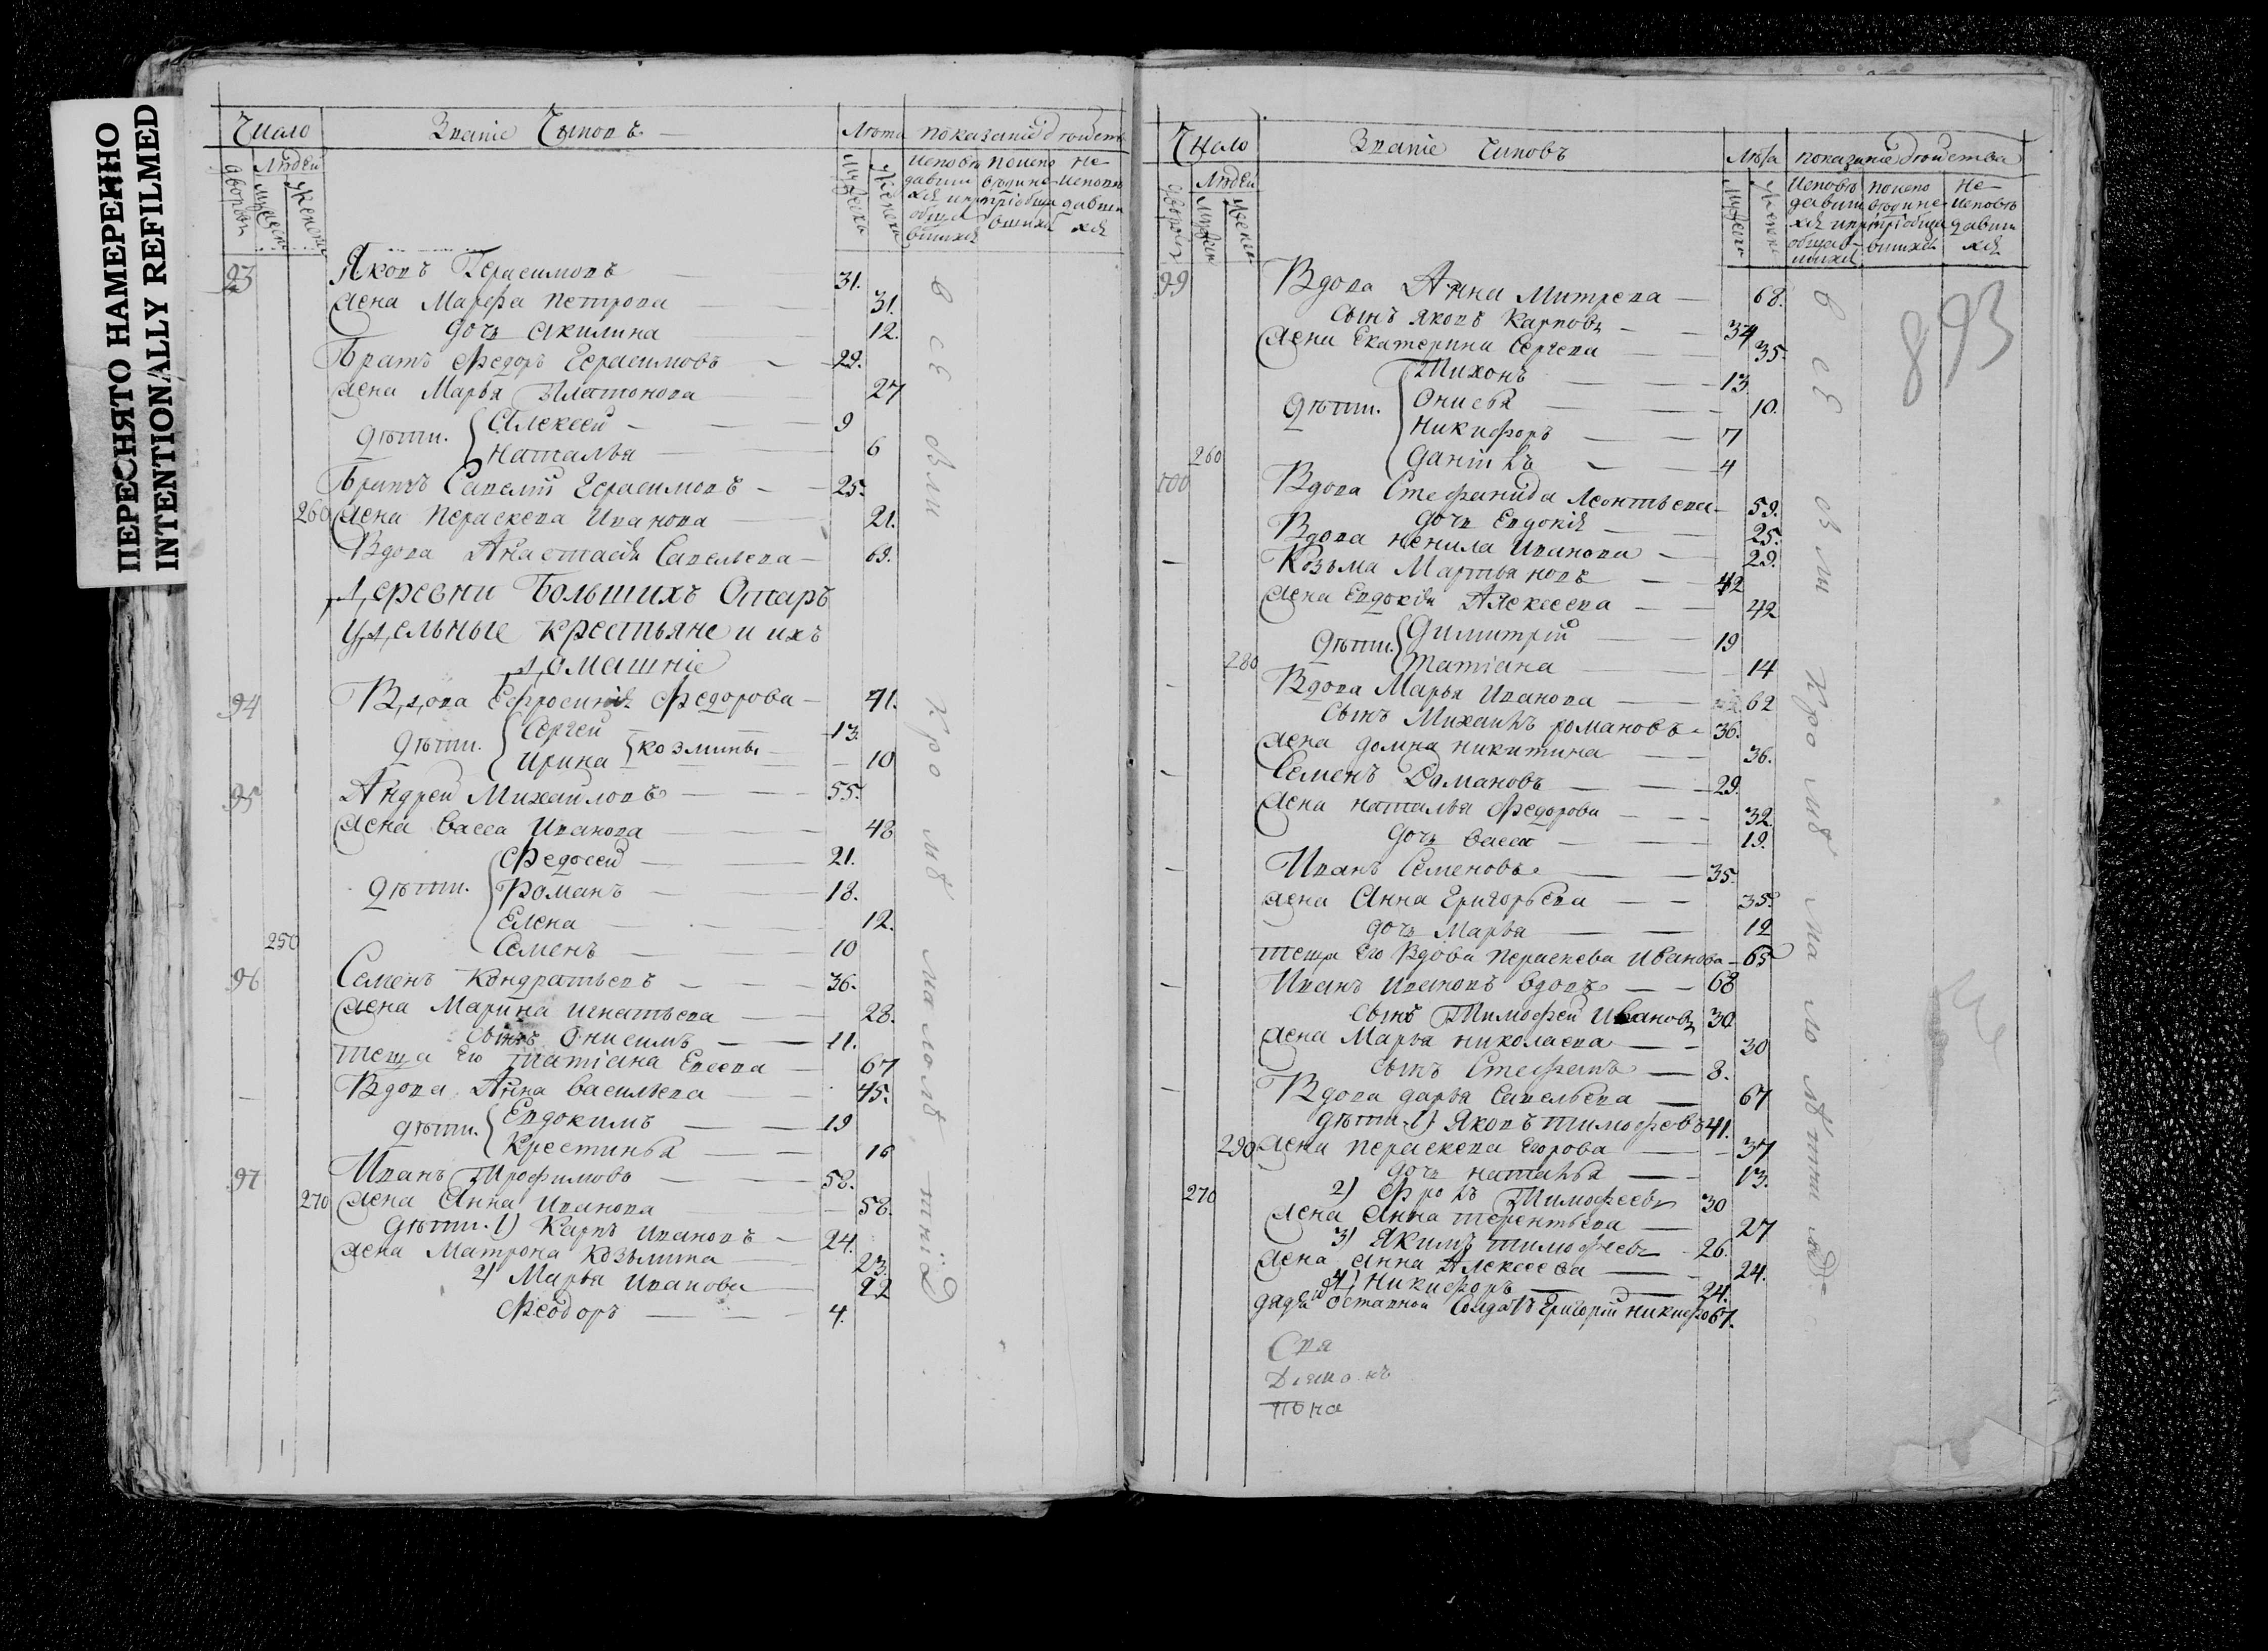 ПЕРЕСНЯТО НАМЕРЕННО
INTENTIONALLY REFILMED
Число Званіе Чиновъ Лѣта показаніе дѣйств
дворовъ Людей мужеска женска мужеска женска
Исповѣдавшихся и пріобщавшихся
поисповѣдине пріобщавшихся
неисповѣдавшихся
93 Яковъ Герасимовъ 31.
жена Марфа Петрова 31.
дочь Акилина 12.
Братъ Федоръ Герасимовъ 29.
жена Марья Платонова 27
дѣти. Алексей 9
Наталья 6
Братъ Савелій Герасимовъ 25.
260 жена Пераскева Иванова 21.
Вдова Анастасія Савельева 69.
Деревни Большихъ Отаръ
удельные крестьяне и ихъ
домашніе
94 Вдова Ефросинія Федорова 41.
дѣти. Сергей 13.
Ирина козмины 10
95 Андрей Михайловъ 55.
жена Васса Иванова 48
Федосей 21.
дѣти. Романъ 18.
Елена 12.
250 Семенъ 10
96 Семенъ Кондратьевъ 36.
жена Марина Игнатьева 28.
сынъ Онисимъ 11.
теща Его Татіана Евсева 67
Вдова Анна Васильева 45.
дѣти. Евдокимъ 19
Крестинья 16
97 Иванъ Трофимовъ 58.
270 жена Анна Иванова 58.
дѣти. 1) Карпъ Ивановъ 24.
жена Матрона Козьмина 23.
2) Марья Иванова 22
Феодоръ 4.
893
Число Званіе Чиновъ Лѣта показаніе дѣйства
дворовъ Людей мужеска женска мужеска женска
99 Вдова Анна Митрева 68.
сынъ Яковъ Карповъ 34
жена Екатерина Сергева 35.
Тихонъ 13.
дѣти. Онисья 10.
Никифоръ 7
260 Данілъ 4
100 Вдова Стефанида Леонтьева 59.
дочь Евдокія 25.
Вдова Ненила Иванова 29.
Козьма Мартьяновъ 42
жена Евдокія Алексеева 42
дѣти. Димитрій 19
280 Татіана 14
Вдова Марья Иванова 62
сынъ Михаилъ романовъ 36.
жена домна никитина 36.
Семенъ Романовъ 29.
жена наталья Федорова 32.
дочь Васса 19.
Иванъ Семеновъ 35.
жена Анна Григорьева 35.
дочь Марья 12
теща Его Вдова Пераскева Иванова 65
Иванъ Ивановъ Вдовъ 68
сынъ Тимофей Ивановъ 30
жена Марья Николаева 30
сынъ Стефанъ 8.
Вдова дарья Савельева 67
дѣти 1) Яковъ Тимофеевъ 41.
290 жена Пераскева Егорова 37
дочь наталья 13.
270 2) Фролъ Тимофеевъ 30
жена Анна Терентьева 27
3) Якимъ Тимофеевъ 26.
жена Анна Алексеева 24.
4) Никифоръ 24.
дядя Отставной Солдатъ Григорій Никифо 67.